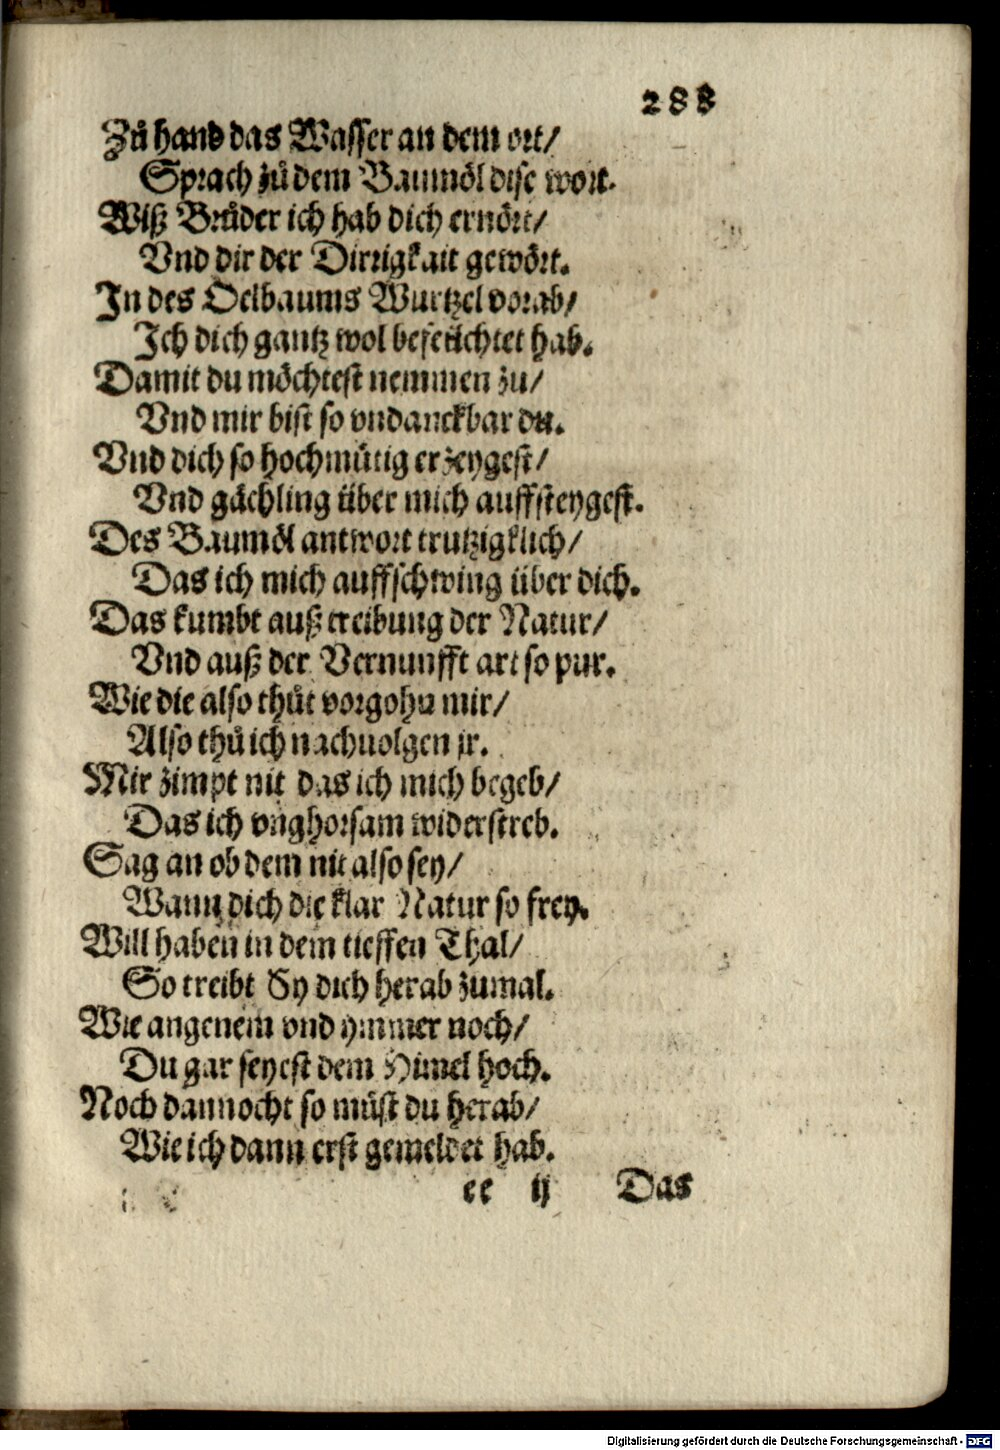 288
Zů hand das Wasser an dem ort/
Sprach zů dem Baumöl dise wort.
Wiß Brůder ich hab dich ernört/
Vnd dir der Dirrigkait gewört.
In des Oelbaums Wurtzel vorab/
Ich dich gantz wol befeüchtet hab.
Damit du möchtest nemmen zu/
Vnd mir bist so vndanckbar du.
Vnd dich so hochmütig erzeygest/
Vnd gächling über mich auffsteygest.
Des Baumöl antwort trutzigklich/
Das ich mich auffschwing über dich.
Das kumbt auß treibung der Natur/
Vnd auß der Vernunfft art so pur.
Wie die also thůt vorgohn mir/
Also thů ich nachuolgen jr.
Mir zimpt nit das ich mich begeb/
Das ich vnghorsam widerstreb.
Sag an ob dem nit also sey/
Wann dich die klar Natur so frey.
Will haben in dem tieffen Thal/
So treibt Sy dich herab zumal.
Wie angenem vnd ymmer noch/
Du gar seyest dem Himel hoch.
Noch dannocht so můst du herab/
Wie ich dann erst gemeldet hab.
ee ij Das
Digitalisierung gefördert durch die Deutsche Forschungsgemeinschaft - DFG